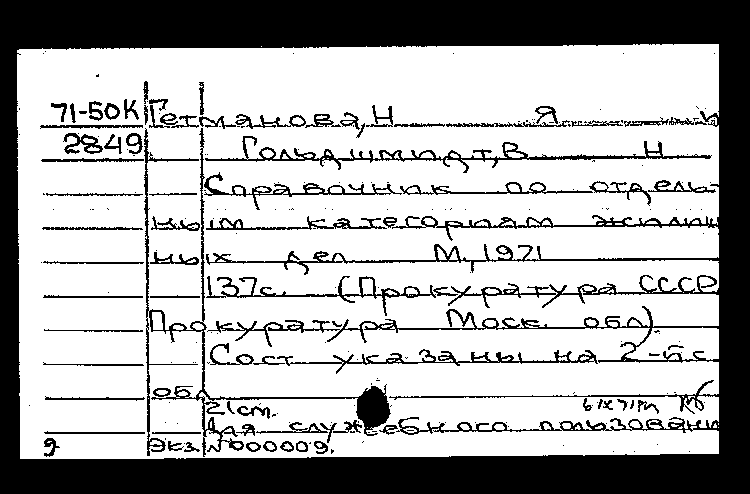 71-50К Гетманова, Н Я и
2849 Гольдшмидт, В Н
Справочник по отдель-
ным категориям жилищ
ных дел М., 1971
137с. (Прокуратура СССР
Прокуратура Моск. обл).
Сост указаны на 2-й с.
обл
21cm.
Для служебного пользовани
9 Экз. N 000009.